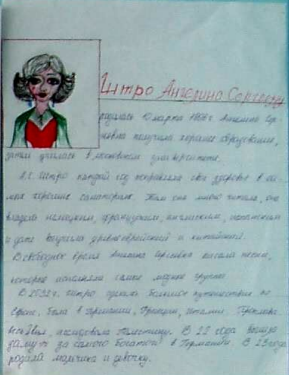 Цитро Ангелина Сергеевна
родилась 10 марта 1968 г. Ангелина Сер-
геевна получила хорошее образование,
затем училась в московском университете.
А.С. Цитро каждый год поправляла свое здоровье в са-
мых хороших санаториях. Там она много читала, она
владела немецким, французским, английским, испанским
и даже выучила древнееврейский и китайский.
В свободное время Ангелина Сергеевна писала песни,
которые исполняли самые модные группы.
В Цитро большое путешествие по
Европе. Была в Германии, Франции, Италии.
Палестину. В 22 года вышла
замуж за самого богатого в Германии. В 23 года
родила мальчика и девочку.